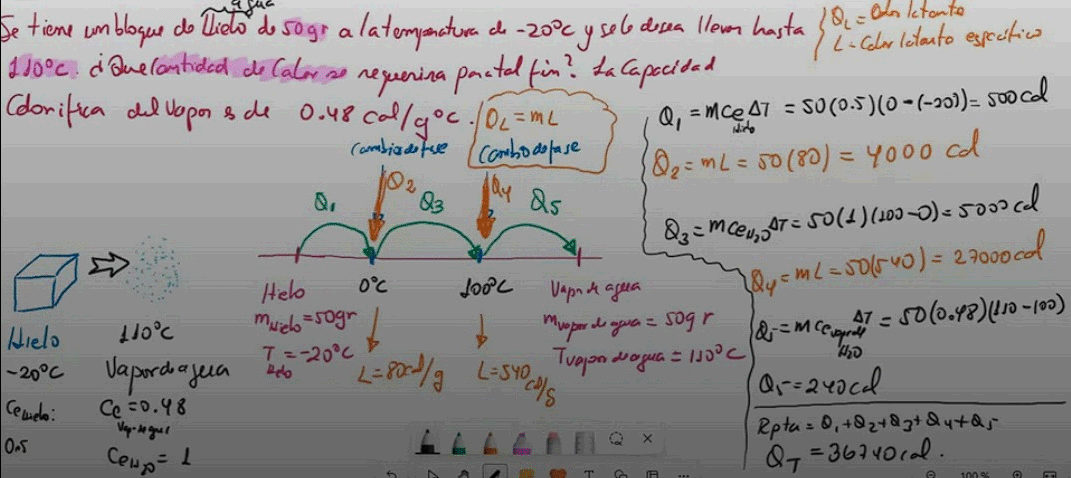 agua
Se tiene un bloque de Hielo de 50gr a la temperatura de -20°c y se le desea llevar hasta
110°c. ¿ Que Cantidad de Calor se requerira para tal fin? La Capacidad
Calorifica del Vapor es de 0.48 cal/g°c.
QL = Calor latante
L = Calor latante especifico
QL = mL
Cambio de fase
Cambio de fase
Q1
Q2
Q3
Q4
Q5
0°C
100°C
Hielo
mHielo = 50gr
T = -20°C
Hielo
L = 80cal/g
L = 540 cal/g
Vapor de agua
mvapor de agua = 50gr
Tvapor de agua = 110°C
Hielo
-20°C
Cehielo:
0.5
110°C
Vapor de agua
Ce = 0.48
Vap-agua
CeH2O = 1
Q1 = mCeΔT = 50(0.5)(0-(-20)) = 500cal
Hielo
Q2 = mL = 50(80) = 4000 cal
Q3 = mCeH2OΔT = 50(1)(100-0) = 5000cal
Q4 = mL = 50(540) = 27000cal
Q5 = mCevapor de H2O ΔT = 50(0.48)(110-100)
Q5 = 240cal
Rpta = Q1+Q2+Q3+Q4+Q5
QT = 36740cal.
100 %